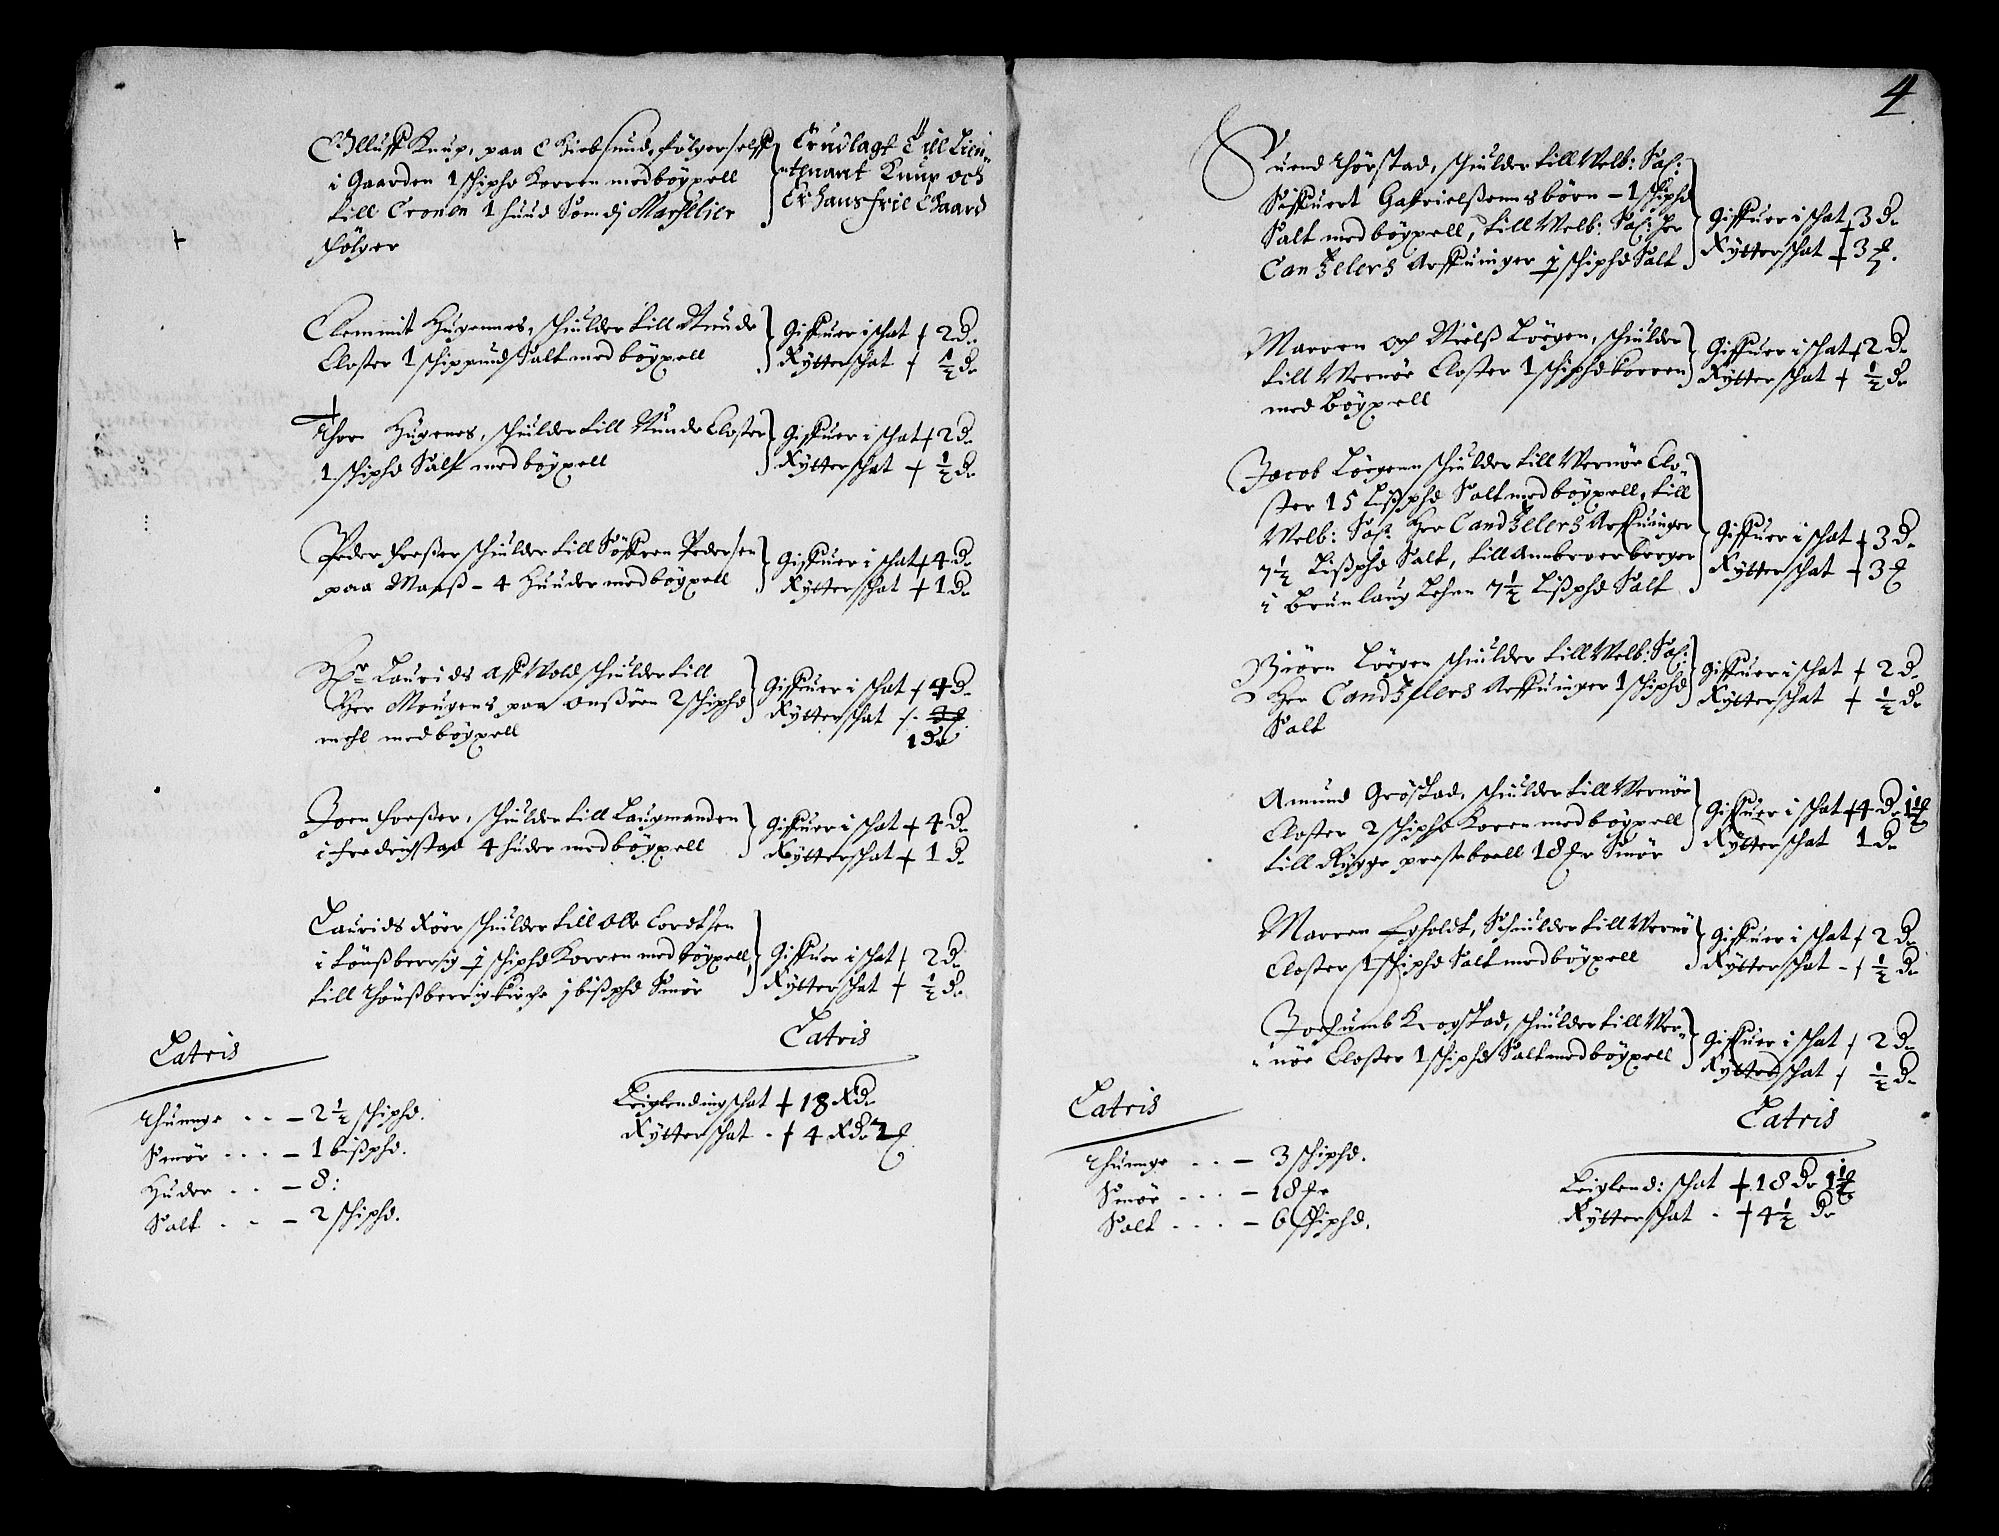 Olluff Knup, paa Kiebsund, følger selff
i Gaarden 1 schiphd Korren med bøyxell
till Cronen 1 huud Som dj Marschlier
følger
Er udlagt till Lieu-
tenant Knup och
Er hans frie Gaard
Clemmit Hugennes, schulder till Nunde
Closter 1 schippund Salt med bøyxell
Giffuer i schat + 2 D.
Rytterschat + ½ D.
Thore Hugenes, schulder till Nunde Closter
1 schiphd Salt med bøyxell
Giffuer i schat + 2 D.
Rytterschat + ½ D.
Peder Fresßer schulder till Søffren Pedersen
paa Manß - 4 Huuder med bøyxell
Giffuer i schat + 4 D.
Rytterschat + 1 D.
Hr Laurids Aff Wold schulder till
Her Mougens paa Onßøen 2 schiphd
mehl med bøyxell
Giffuer i schat + 4 D.
Rytterschat +
1 D.
Joen Forßer, schulder till Laugmanden
i Fredrichstad 4 huder med bøyxell
Giffuer i schat + 4 D.
Rytterschat + 1 D.
Laurids Røer schulder till Olle Cordtsen
i Tønßberrig ½ schiphd Korren med bøyxell,
till Thønßberrig Kirche 1 bißphd Smør
Giffuer i schat + 2 D.
Rytterschat + ½ D.
Latris
Thunge - 2½ schiphd.
Smør - 1 bißphd.
Huder - 8:
Salt - 2 schiphd.
Latris
Leiglendingschat + 18 RD.
Rytterschat + 4 RD.
4
Suend Thorstad, schulder till Welb: Sal:
Siffuert Gabrielßenns børn - 1 schiphd
Salt med bøyxell, till Welb: Sal: Her
Cantzelers Arffuinger ½ schiphd Salt
Giffuer i schat + 3 D.
Rytterschat + 3
Marren och Nielß Løegen, schulder
till Wernøe Closter 1 schiphd Korren
med bøyxell
Giffuer i schat + 2 D.
Rytterschat + ½ D.
Jacob Løegenn schulder till Wernøe Clo-
ster 15 Lißphd Salt med bøyxell, till
Welb: Sal: Her Candtzelers Arffuinger
7½ Lißphd Salt, till
i Brunlaug Lehen 7½ Lißphd Salt
Giffuer i schat + 3 D.
Rytterschat + 3
Biørn Løegen schulder till Welb: Sal:
Her Candtzellers Arffuinger 1 schiphd
Salt
Giffuer i schat + 2 D.
Rytterschat + ½ D.
Amund Grøstad, schulder till Wernøe
Closter 2 schiphd Korren med bøyxell
till Rygge presteboell 18 Smør
Giffuer i schat + 4 D.
Rytterschat 1 D.
Marren Egholdt, Schulder till Wernø
Closter 1 schiphd Salt med bøyxell
Giffuer i schat + 2 D.
Rytterschat - + ½ D.
Jochumb Krogstad, schulder till Wer-
nøe Closter 1 schiphd Salt med bøyxell
Giffuer i schat + 2 D.
Rytterschat + ½ D.
Latris
Thunge - 3 schiphd.
Smør - 18
Salt - 6 schiphd.
Latris
Leiglend: schat + 18 D.
Rytterschat + 4½ D.